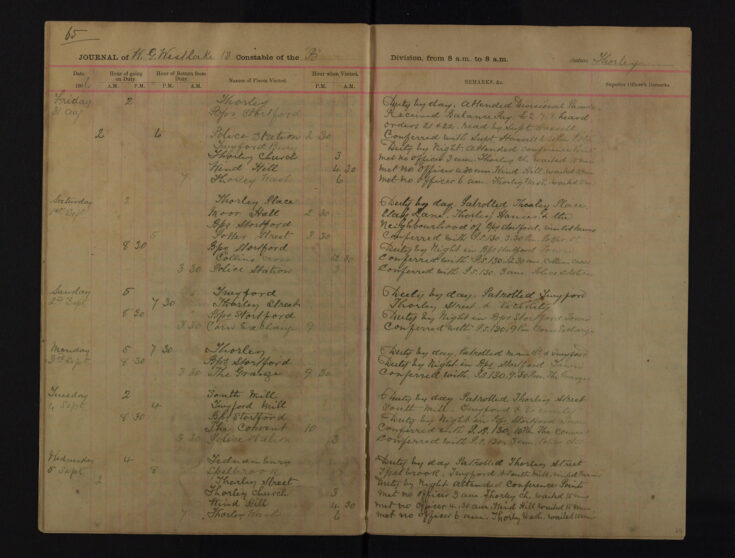 65
JOURNAL of W. G. Westlake 13 Constable of the B Division, from 8 a.m. to 8 a.m. Station Thorley
Date 190 Hour of going on Duty. A.M. P.M. Hour of Return from Duty. P.M. A.M. Names of Places Visited. Hour when Visited. P.M. A.M. REMARKS, &c. Superior Officer's Remarks
Friday 2 Thorley Duty by day. Attended Divisional
31 Aug Bps Stortford Received Balance Pay heard
orders 21 & 22. read by Supt
2 6 Police Station 2 30 Conferred with Supt
Twyford Bury Duty by Night. Attended conference
Thorley Church 3 met no officer 3 am. Thorley Ch. waited
Wind Hill 4 30 met no officer 4.30 am Wind Hill waited
7 Thorley Wash 6 met no officer 6 am. Thorley Wash. waited
Saturday 2 Thorley Place Duty by day. Patrolled Thorley Place
1st Sept Moor Hall 2 30 Lane, Thorley Houses & the
Bps Stortford Neighbourhood of Bps Stortford
5 Potter Street 3 30 Conferred with P.S. 130. 3.30 Pm
8 30 Bps Stortford Duty by Night in Bps Stortford Town
Collins Cross 12 30 Conferred with P.S. 130 12.30 am Collins Cross
3 30 Police Station 3 Conferred with P.S. 130. 3 am. Police Station
Sunday 5 Twyford Duty by day. Patrolled Twyford
2nd Sept 7 30 Thorley Street Thorley Street & Vicinity
8 30 Bps Stortford Duty by Night in Bps Stortford Town
3 30 Corn Exchang 9 Conferred with P.S. 130. 9 Pm Corn Exchange
Monday 5 7 30 Thorley Duty by day. Patrolled Twyford
3rd Sept 8 30 Bps Stortford Duty by Night in Bps Stortford Town
3 30 The Grange 9 30 Conferred with P.S. 130. 9.30 Pm. The Grange
Tuesday 2 South Mill Duty by day Patrolled Thorley Street
4 Sept 4 Twyford Mill South Mill, Twyford & Vicinity
8 30 Bps Stortford Duty by Night in Bps Stortford Town
The Convent 10 Conferred with P.S. 130. 10 Pm The Convent
3 30 Police Station 3 Conferred with P.S. 130. 3 am Police
Wednesday 4 Duty by day Patrolled Thorley Street
5 Sept 8 Spelbrook Spelbrook, Twyford & South Mill,
2 Thorley Street Duty by Night Attended Conference Points
Thorley Church 3 met no officer 3 am Thorley Ch. waited 10 min
Wind Hill 4 30 met no officer 4.30 am. Wind Hill waited 10 min
7 Thorley Wash 6 met no officer 6 am. Thorley Wash. waited